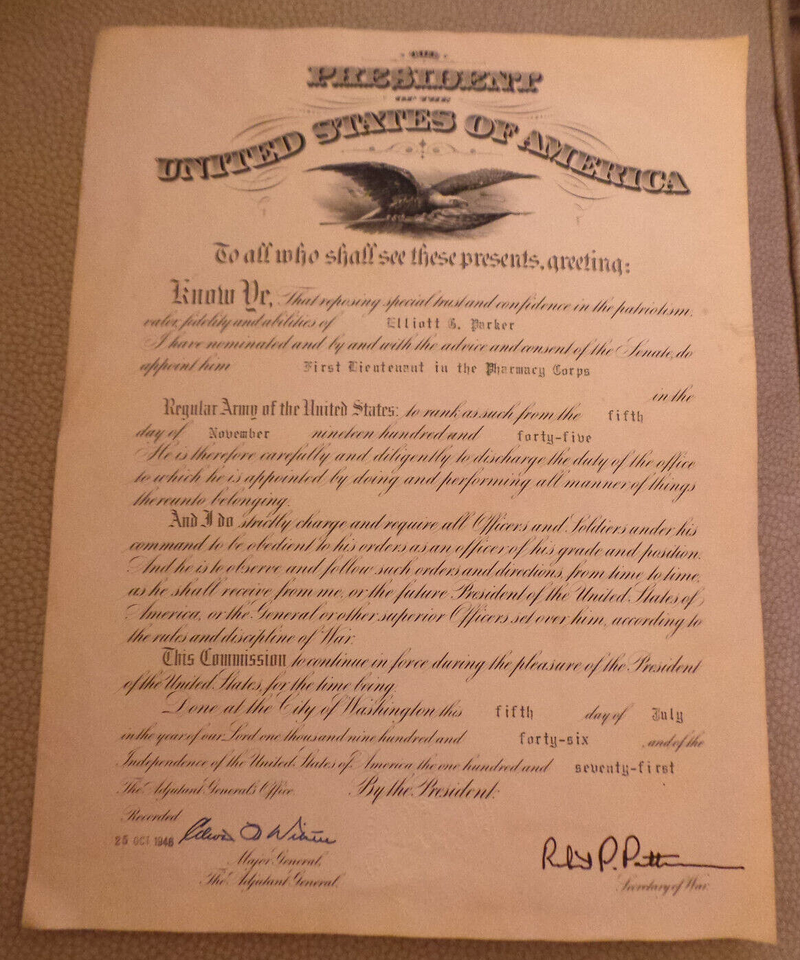 THE
PRESIDENT
OF THE
UNITED STATES OF AMERICA
To all who shall see these presents, greeting:
Know Ye, That reposing special trust and confidence in the patriotism,
valor, fidelity and abilities of Elliott G. Parker
I have nominated and by and with the advice and consent of the Senate, do
appoint him First Lieutenant in the Pharmacy Corps
in the
Regular Army of the United States: to rank as such from the fifth
day of November nineteen hundred and forty-five
He is therefore carefully and diligently to discharge the duty of the office
to which he is appointed by doing and performing all manner of things
thereunto belonging.
And I do strictly charge and require all Officers and Soldiers under his
command to be obedient to his orders as an officer of his grade and position.
And he is to observe and follow such orders and directions, from time to time,
as he shall receive from me, or the future President of the United States of
America, or the General or other superior Officers set over him, according to
the rules and discipline of War.
This Commission to continue in force during the pleasure of the President
of the United States, for the time being.
Done at the City of Washington, this fifth day of July
in the year of our Lord one thousand nine hundred and forty-six, and of the
Independence of the United States of America the one hundred and seventy-first
The Adjutant General's Office. By the President:
Recorded
25 OCT 1946
Major General,
The Adjutant General.
Robert P. Patterson
Secretary of War.